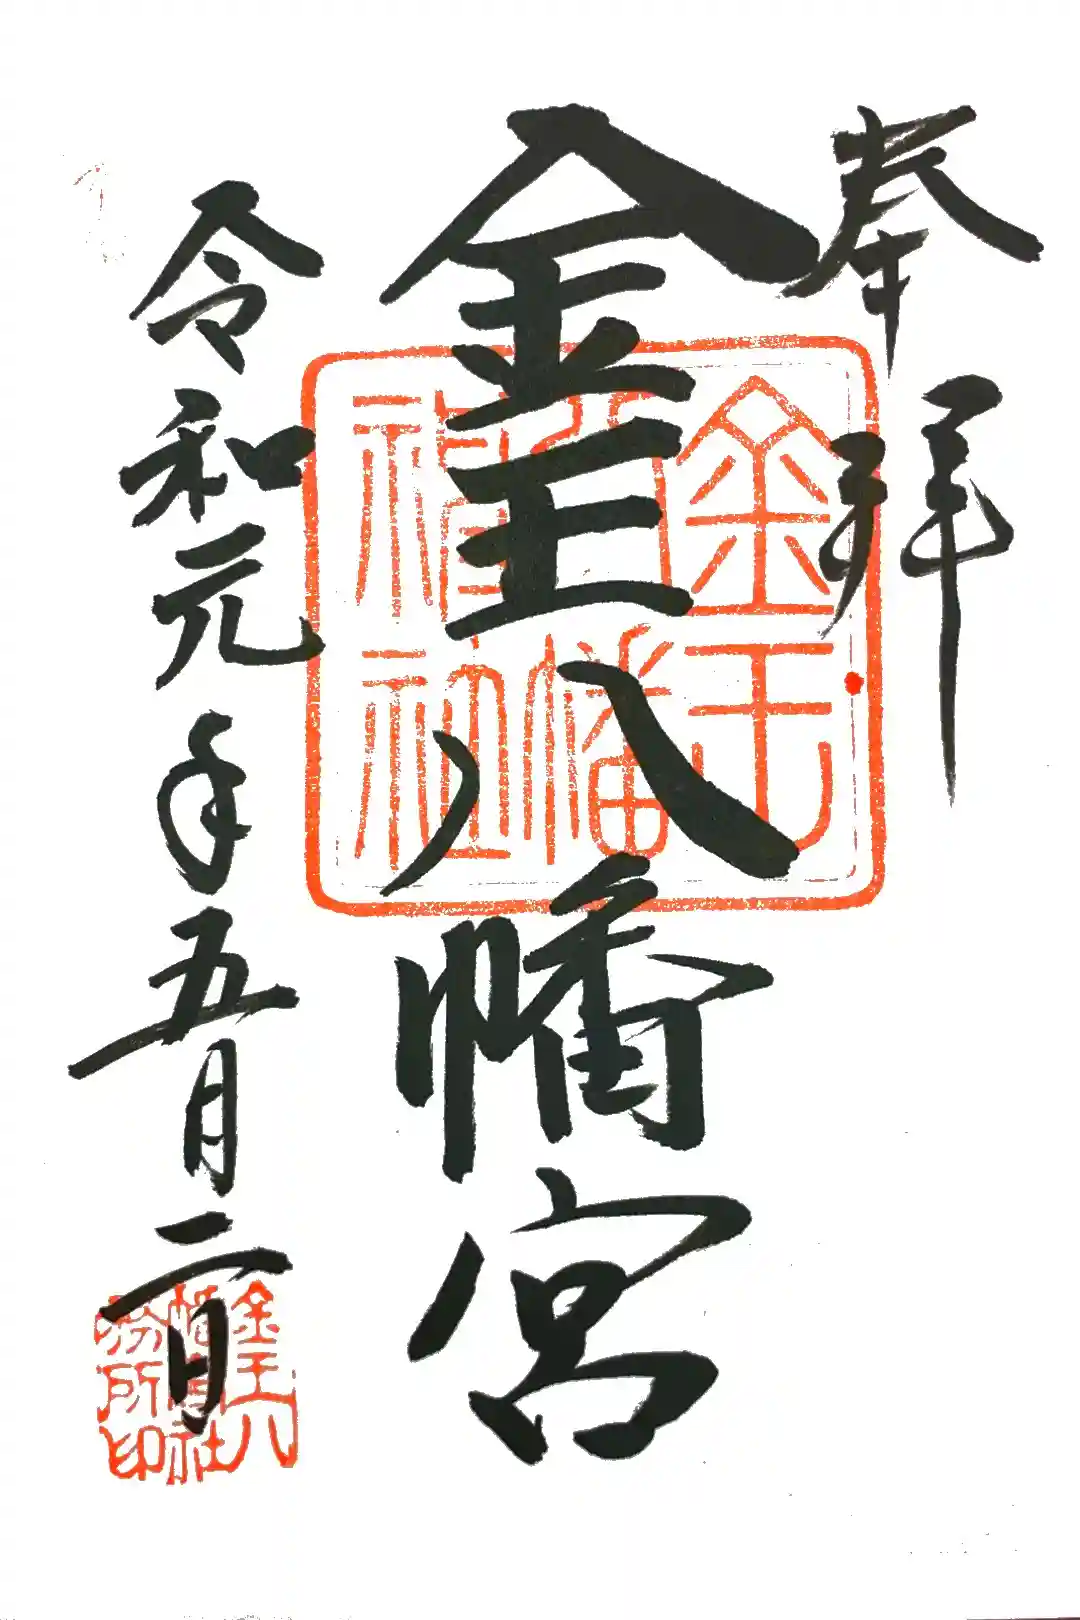 奉拝
金王八幡宮
金王八幡神社
令和元年五月二日
金王八幡宮社務所印